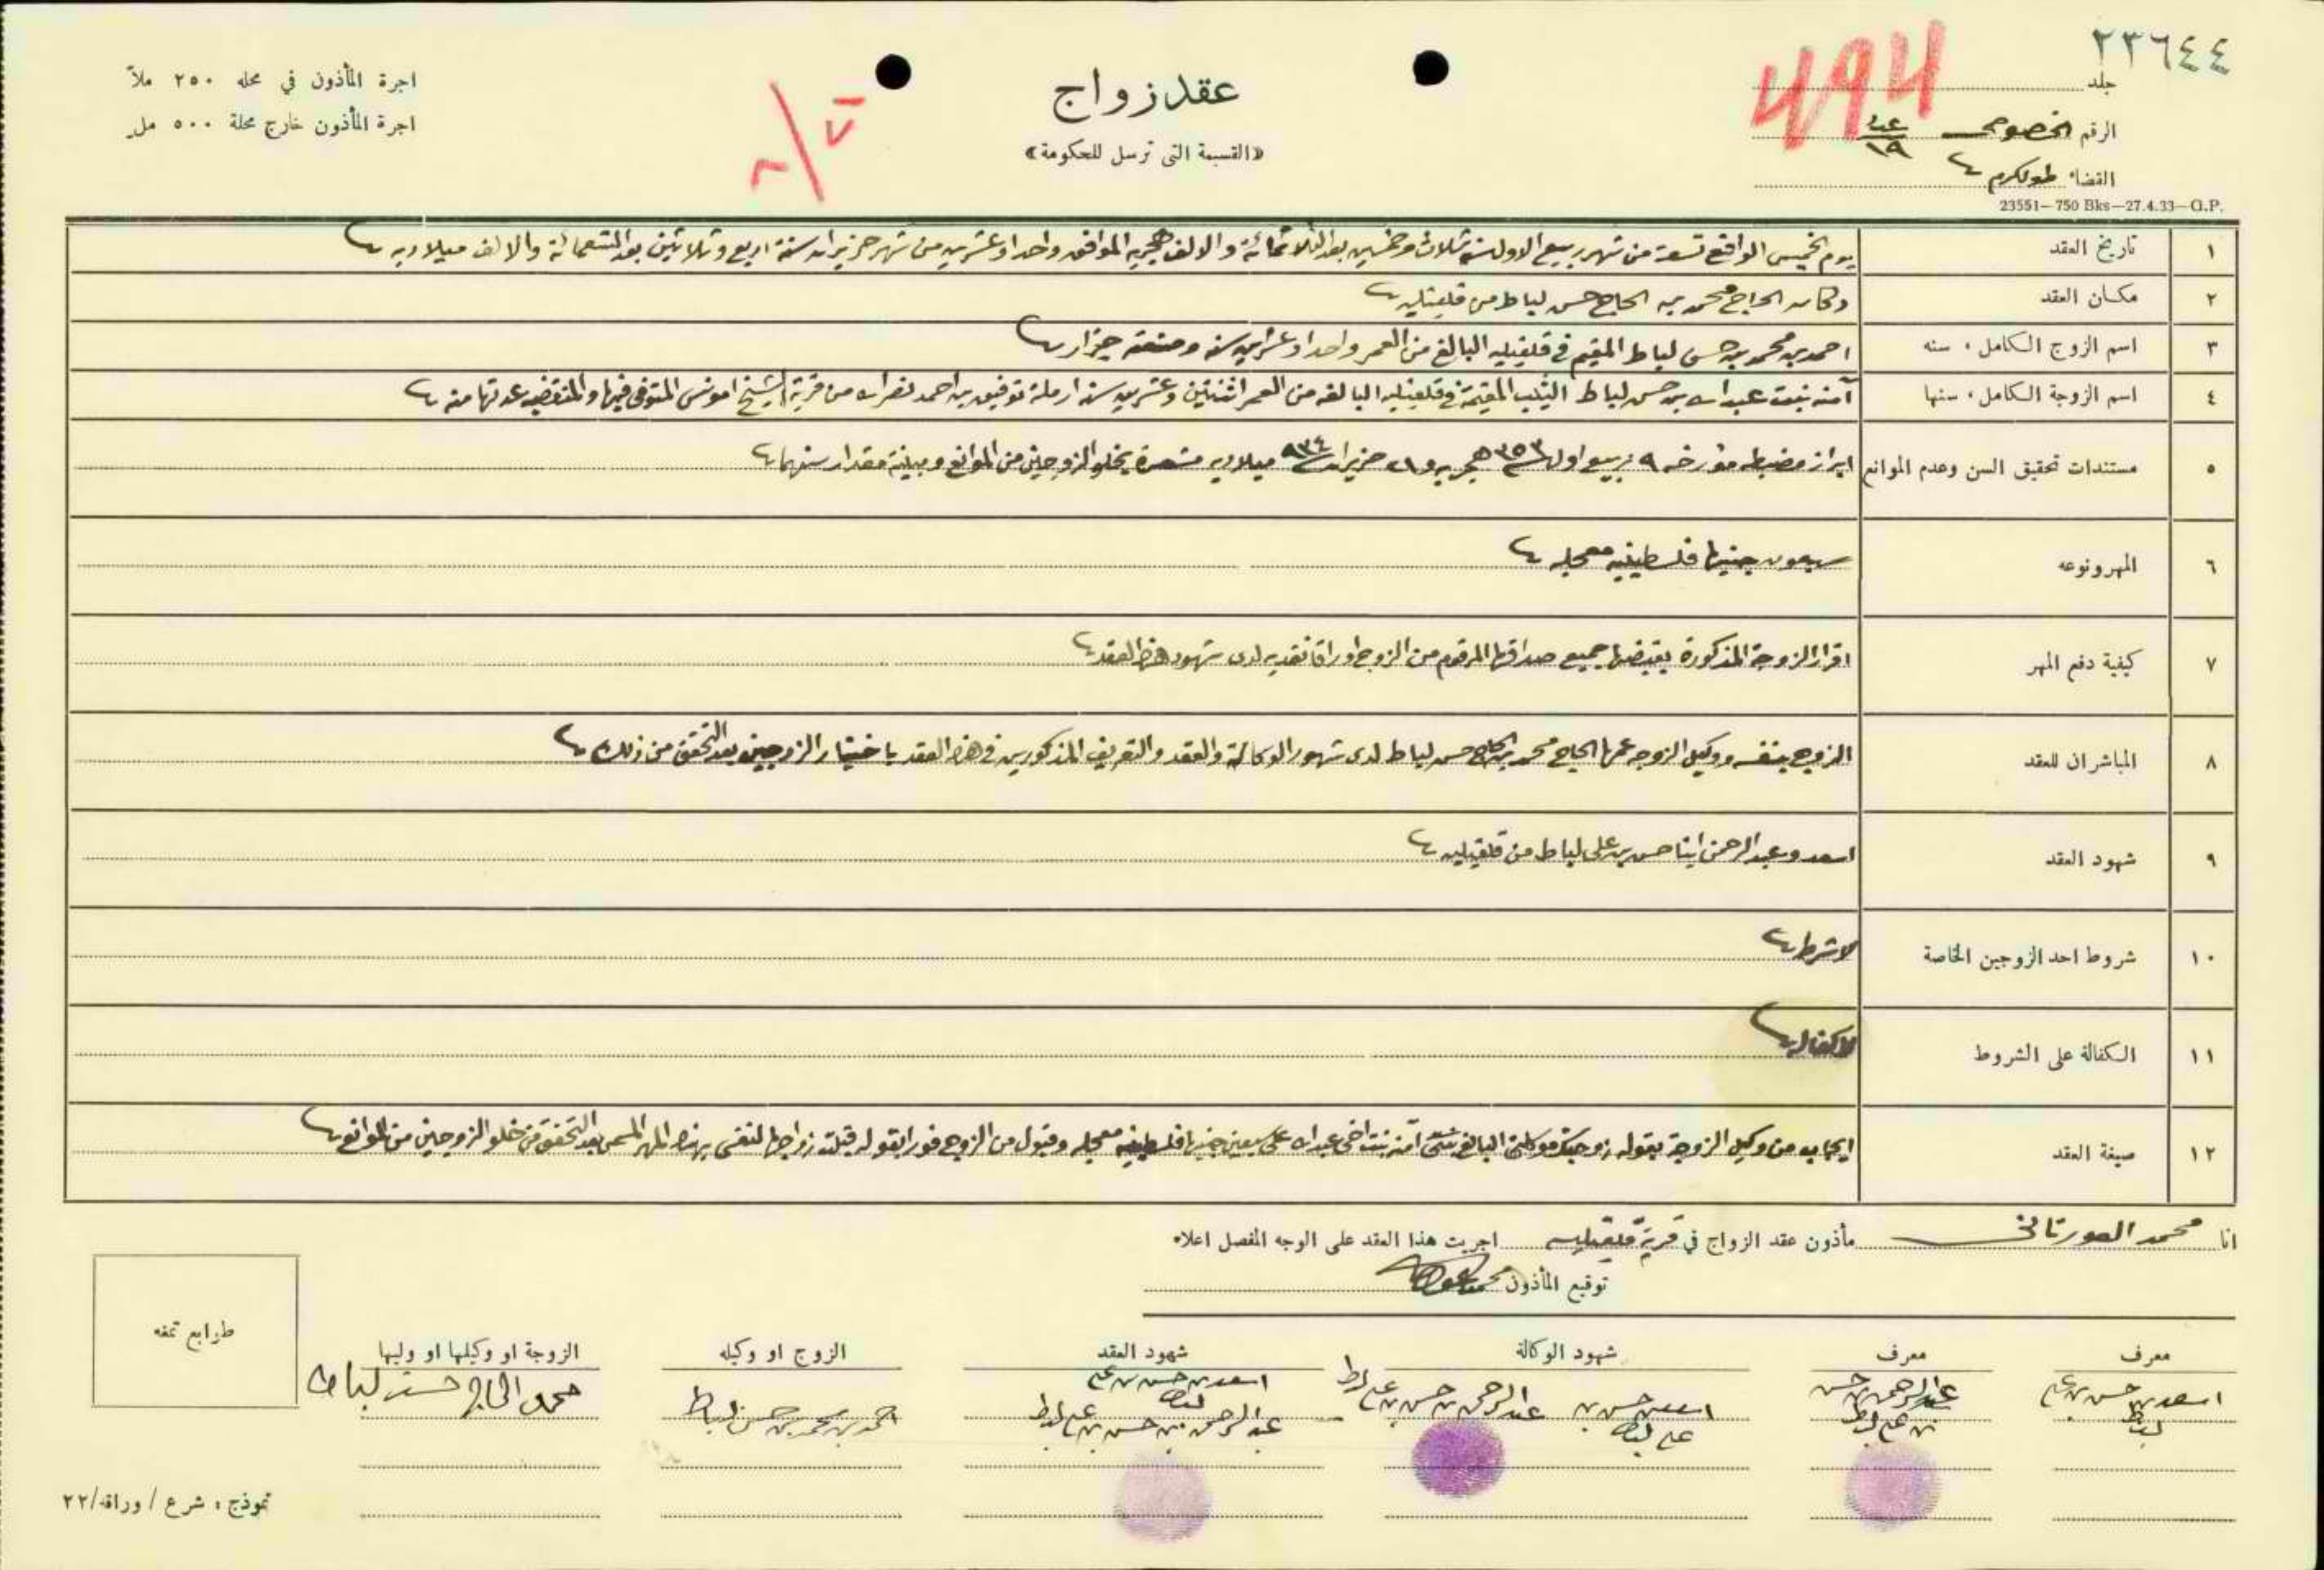 ٢٣٦٤٤
جلد
494
الرقم الخصوصي ١٩
القضاء طولكرم
23551—750 Bks—27.4.33—G.P.
عقد زواج
«القسيمة التى ترسل للحكومة»
اجرة المأذون في محله ٢٥٠ ملاً
اجرة المأذون خارج محلة ٥٠٠ مل
١ تاريخ العقد يوم الخميس الواقع تسعة من شهر ربيع الاول سنة ثلاث وخمسين بعد الثلاثمائة والالف هجريه الموافق واحد وعشرين من شهر حزيران سنة اربع وثلاثين بعد التسعمائة والالف ميلاديه
٢ مكان العقد دكان الحاج محمد بن الحاج حسن لباط من قلقيليه
٣ اسم الزوج الكامل، سنه احمد بن محمد بن حسن لباط المقيم في قلقيليه البالغ من العمر واحدا وعشرين سنه وصنعته جزار
٤ اسم الزوجة الكامل، سنها آمنه بنت عبدالله بن حسن لباط الثيب المقيمة في قلقيليه البالغه من العمر اثنتين وعشرين سنه ارملة توفيق بن احمد نصرالله من قرية الشيخ امونس المتوفى فيها والمنقضيه عدتها منه
٥ مستندات تحقيق السن وعدم الموانع ابراز مضبطه مؤرخه ٩ ربيع اول سنة ٣٥٣ هجريه و٢١ حزيران سنة ٩٣٤ ميلاديه مشعرة بخلو الزوجين من الموانع ومبينة مقدار سنهما
٦ المهر ونوعه سبعون جنيها فلسطينيه معجله
٧ كيفية دفع المهر اقرار الزوجة المذكورة بقبضها جميع صداقها المرقوم من الزوج اوراقا نقديه لدى شهود هذا العقد
٨ المباشران للعقد الزوج بنفسه ووكيل الزوجه عمها الحاج محمد بن الحاج حسن لباط لدى شهود الوكالة والعقد والتعريف المذكورين في هذا العقد باختيار الزوجين بعد التحقق من ذلك
٩ شهود العقد اسعد وعبدالرحمن ابنا حسن بن علي لباط من قلقيليه
١٠ شروط احد الزوجين الخاصة لا شرط
١١ الكفالة على الشروط لا كفاله
١٢ صيغة العقد ايجاب من وكيل الزوجة بقوله زوجتك موكلتي البالغ آمنه بنت اخي عبدالله على سبعين جنيها فلسطينيه معجله وقبول من الزوج فورا بقوله قبلت زواجها لنفسي بهذا المهر المسمى بعد التحقق من خلو الزوجين من الموانع
انا محمد مأذون عقد الزواج في قرية قلقيليه اجريت هذا العقد على الوجه المفصل اعلاه
توقيع المأذون محمد
معرف
اسعد بن حسن بن علي
لباط
معرف
عبدالرحمن بن حسن
بن علي لباط
شهود الوكالة
اسعد بن حسن بن
علي لباط
عبدالرحمن بن حسن بن علي لباط
شهود العقد
اسعد بن حسن بن علي
لباط
عبدالرحمن بن حسن بن علي لباط
الزوج او وكيله
احمد بن محمد بن حسن لباط
الزوجة او وكيلها او وليها
محمد الحاج حسن لباط
طوابع تمغه
نموذج، شرع / وراقه/٢٢